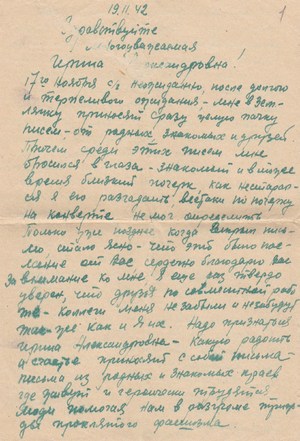 19.11.42
1
Здравствуйте
Многоуважаемая
Ирина Александровна!
17го Ноября с/г неожиданно, после долгого
и терпеливого ожидания - мне в зем-
лянку приносят сразу целую пачку
писем - от родных знакомых и друзей
Причем среди этих писем мне
бросился в глаза - знакомый и в тоже
время близкий почерк, как не старал-
ся я его разгадать, всётаки по почерку
на конверте не мог определить
Только уже позже когда вскрыл пись-
мо стало ясно - что это было пос-
лание от Вас сердечно благодарю Вас
за внимание ко мне, я еще раз твердо
уверен, что друзья по совместной раб
те - коллеги меня не забыли и не забудут
так же как и я их. Надо признаться
Ирина Александровна - какую радость
и счастье приносят с собой письма -
письма из родных и знакомых краев
где живут и героически трудятся
люди помогая нам в разгроме
проклятого фашизма.